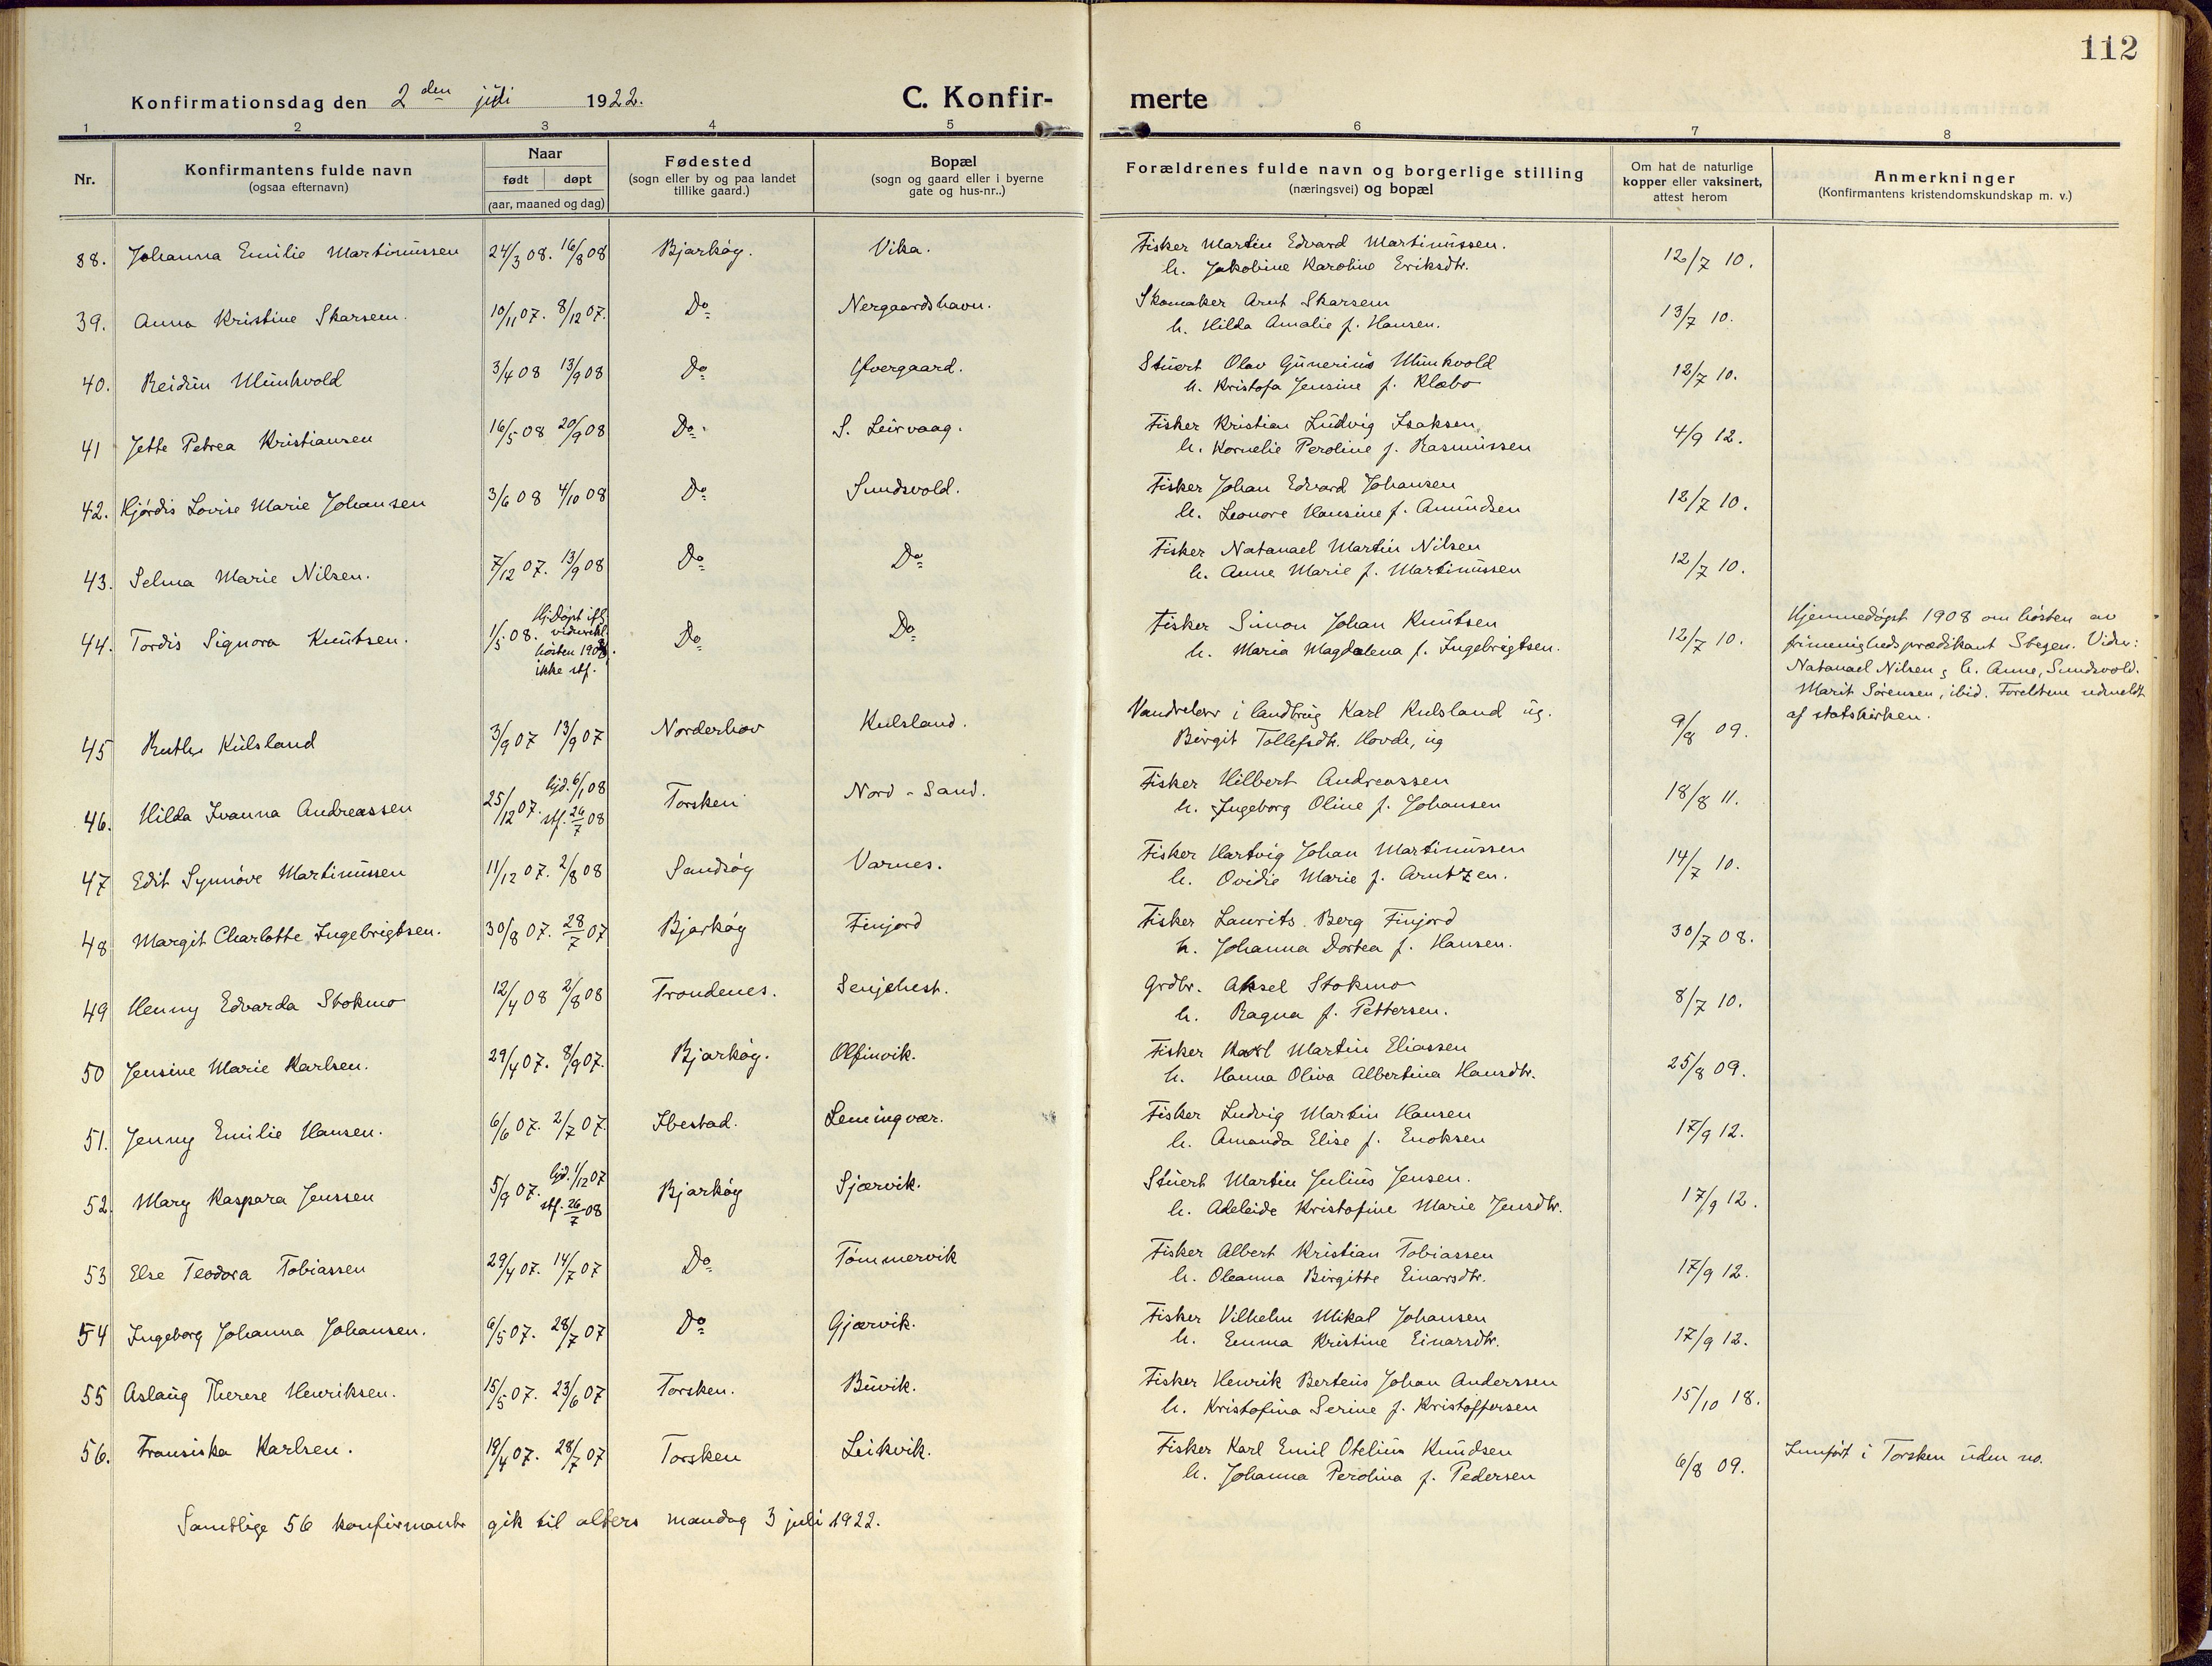 112
Konfirmationsdag den 2 den juli 1922.
C. Konfir-merte
1 2 3 4 5 6 7 8
Nr.
Konfirmantens fulde navn
(ogsaa efternavn)
Naar
født døpt
(aar, maaned og dag)
Fødested
(sogn eller by og paa landet
tillike gaard.)
Bopæl
(sogn og gaard eller i byerne
gate og hus-nr..)
Forældrenes fulde navn og borgerlige stilling
(næringsvei) og bopæl
Om hat de naturlige
kopper eller vaksinert,
attest herom
Anmerkninger
(Konfirmantens kristendomskundskap m. v.)
38. Johanna Emilie Martinussen 24/3 08. 16/8 08 Bjarkøy. Vika. Fisker Martin Edvard Martinussen. 12/7 10.
h. Jakobine Karoline Eriksdtr.
39. Anna Kristine Skarsem. 10/11 07. 8/12 07. Do Nergaardshavn. Skomaker Arnt Skarsem 13/7 10.
h. Hilda Amalie f. Hansen.
40. Reidun Munkvold 3/4 08 13/9 08 Do Øvergaard. Stuert Olav Gunerius Munkvold 12/7 10.
h. Kristofa Jensine f. Klæbo
41 Jette Petrea Kristiansen 16/5 08 20/9 08 Do. S. Leirvaag. Fisker Kristian Ludvig Isaksen 4/9 12.
h. Kornelie Peroline f. Rasmussen
42. Hjørdis Lovise Marie Johansen 3/6 08 4/10 08 Do Sundsvold. Fisker Johan Edvard Johansen 12/7 10.
h. Leonore Hansine f. Amundsen
43. Selma Marie Nilsen. 7/12 07. 13/9 08 Do Do Fisker Natanael Martin Nilsen 12/7 10.
h. Anne Marie f. Martinussen
44. Tordis Signora Knutsen. 1/5 08. Hj.døpt ifg.
høsten 1908.
ikke stf. Do Do Fisker Simon Johan Knutsen 12/7 10.
h. Maria Magdalena f. Ingebrigtsen.
Hjemmedøpt 1908 om høsten av
frimenighedsprædikant Stegen. Vidn:
Natanael Nilsen, h. Anne, Sundsvold.
Marit Sørensen, ibid. Foreldrene udmeldt
af statskirken.
45 Ruth Kulsland 3/9 07 13/9 07 Norderhov Kulsland. i landbrug Karl Kulsland ug. 9/8 09.
Birgit Tollefsdtr. Hovde, ug
46. Hilda Ivanna Andreassen 25/12 07. hjd. 6/1 08 stf. 26/7 08 Torsken Nord-Sand. Fisker Hilbert Andreassen 18/8 11.
h. Ingeborg Oline f. Johansen
47 Edit Synnøve Martinussen 11/12 07. 2/8 08 Sandsøy Varnes. Fisker Hartvig Johan Martinussen 14/7 10.
h. Ovidie Marie f. Arntzen.
48 Margit Charlotte Ingebrigtsen. 30/8 07. 28/7 07 Bjarkøy Finjord Fisker Laurits Berg Finjord 30/7 08.
h. Johanna Dortea f. Hansen.
49 Henny Edvarda Stokmo 12/4 08 2/8 08 Trondenes. Senjehest. Grdbr. Aksel Stokmo 8/7 10.
h. Ragna f. Pettersen.
50 Jensine Marie Karlsen. 29/4 07. 8/9 07. Bjarkøy. Olfinvik. Fisker Karl Martin Eliassen 25/8 09.
h. Hanna Oliva Albertina Hansdtr.
51. Jenny Emilie Hansen. 6/6 07. 2/7 07. Ibestad. Lemingvær. Fisker Ludvig Martin Hansen 17/9 12.
h. Amanda Elise f. Enoksen
52 Mary Kaspara Jenssen 5/9 07. hjd. 1/12 07 stf. 26/7 08 Bjarkøy Sjærvik. Stuert Martin Julius Jensen. 17/9 12.
h. Adeleide Kristofine Marie Jensdtr.
53 Else Teodora Tobiassen 29/4 07. 14/7 07 Do Tømmervik Fisker Albert Kristian Tobiassen 17/9 12.
h. Oleanna Birgitte Einarsdtr.
54 Ingeborg Johanna Johansen. 6/5 07. 28/7 07 Do Gjærvik. Fisker Vilhelm Mikal Johansen 17/9 12.
h. Emma Kristine Einarsdtr.
55 Aslaug Therese Henriksen. 15/5 07. 23/6 07 Torsken. Buvik. Fisker Henrik Berteus Johan Anderssen 15/10 18.
h. Kristofina Serine f. Kristoffersen
56. Fransiska Karlsen. 19/4 07. 28/7 07 Torsken Leikvik. Fisker Karl Emil Otelius Knudsen 6/8 09. Innført i Torsken uden no.
h. Johanna Perolina f. Pedersen
Samtlige 56 konfirmanter gik til alters mandag 3 juli 1922.